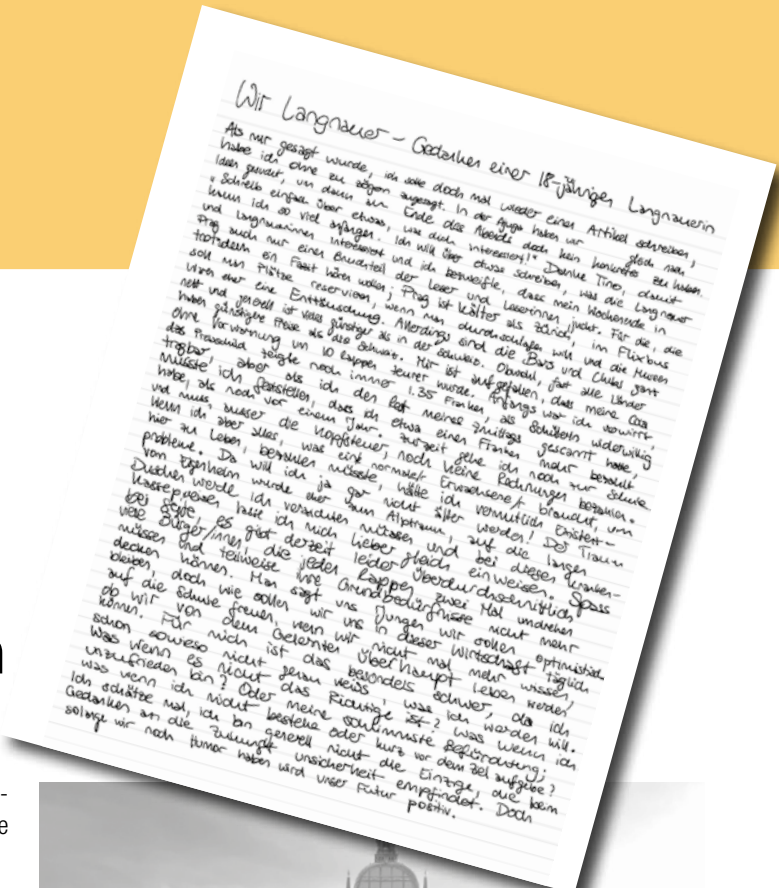 Wir Langnauer – Gedanken einer 18-jährigen Langnauerin
Als mir gesagt wurde, ich solle doch mal wieder einen Artikel schreiben,
habe ich ohne zu zögern zugesagt. In der Ajuga haben wir gleich nach
Ideen gesucht, um dann am Ende des Abends doch kein konkretes zu haben.
"Schreib einfach über etwas, was dich interessiert!" Danke Tino, damit
kann ich so viel anfangen. Ich will über etwas schreiben, was die Langnauer
und Langnauerinnen interessiert und ich bezweifle, dass mein Wochenende in
Prag auch nur einen Bruchteil der Leser und Leserinnen juckt. Für die, die
trotzdem ein Fazit hören wollen; Prag ist kälter als Zürich, im Flixbus
soll man Plätze reservieren, wenn man durchschlafen will und die Museen
waren eher eine Enttäuschung. Allerdings sind die Bars und Clubs ganz
nett und generell ist vieles günstiger als in der Schweiz. Obwohl, fast alle Länder
haben günstigere Preise als die Schweiz. Mir ist aufgefallen, dass meine Cola
ohne Vorwarnung um 10 Rappen teurer wurde. Anfangs war ich verwirrt,
das Preisschild zeigte noch immer 1.35 Franken, als Schülerin widerwillig
tragbar, aber als ich den Rest meines Zmittags gescannt habe,
musste ich feststellen, dass ich etwa einen Franken mehr bezahlt
habe, als noch vor einem Jahr. Zurzeit gehe ich noch zur Schule
und muss, ausser die Kopfsteuer, noch keine Rechnungen bezahlen.
Wenn ich aber alles, was eine normale/r Erwachsene/r braucht, um
hier zu leben, bezahlen müsste, hätte ich vermutlich Existenz-
probleme. Da will ich ja gar nicht älter werden! Der Traum
vom Eigenheim wurde eher zum Alptraum, auf die langen
Duschen werde ich verzichten müssen und bei diesen Kranken-
kassenpreisen lasse ich mich lieber gleich einweisen. Spass
bei Seite, es gibt derzeit leider überdurchschnittlich
viele Bürger/innen die jeden Rappen zwei Mal umdrehen
müssen und teilweise ihre Grundbedürfnisse nicht mehr
decken können. Man sagt uns Jungen wir sollen optimistisch
bleiben, doch wie sollen wir uns in dieser Wirtschaft täglich
auf die Schule freuen, wenn wir nicht mal mehr wissen,
ob wir von dem Gelernten überhaupt leben werden
können. Für mich ist das besonders schwer, da ich
schon sowieso nicht genau weiss, was ich werden will.
Was wenn es nicht das Richtige ist? Was wenn ich
unzufrieden bin? Oder meine schlimmste Befürchtung;
was wenn ich nicht bestehe oder kurz vor dem Ziel aufgebe?
Ich schätze mal, ich bin generell nicht die Einzige, die beim
Gedanken an die Zukunft unsicherheit empfindet. Doch
solange wir noch Humor haben wird unser Futur positiv.